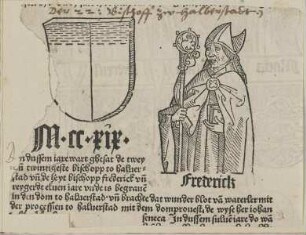 Der 22: Bischoff zu Halberstadt
M·cc·xix·
Frederick
In dussem iare wart ghesat de twey
vn̄ twintigeste bisschopp to halber-
stad vn̄ de heyt bisschopp frederick vn̄
reygerde einen iare vn̄ de is begrauē
in den dom to halberstad vn̄ brachte dat wunder blot vā waterler mit
der processien to halberstad mit dem domprouest, de wyse her iohan
seneca In dussem sulue iare do wa